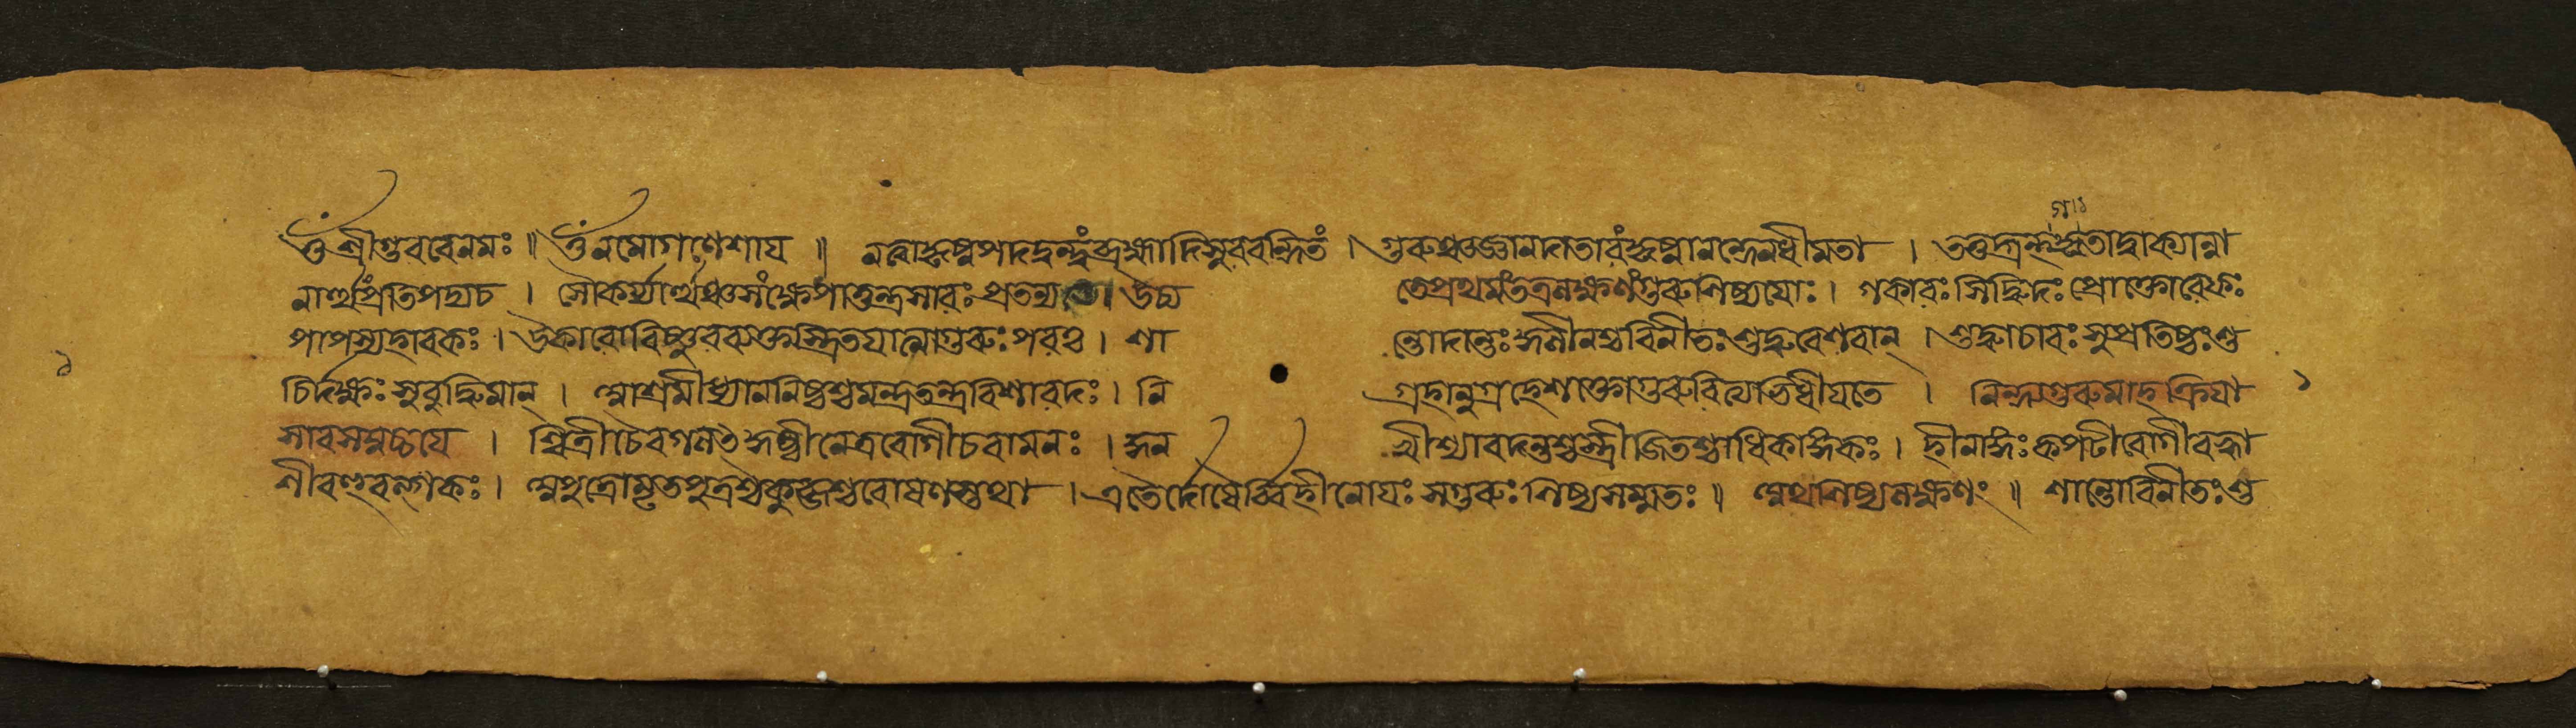 ওঁ শ্রীগুরবেনমঃ॥ ওঁ নমোগণেশায ॥ নত্বাকৃষ্ণপদদ্বন্দ্বংব্রহ্মাদিসুরবন্দিতং । গুরুঞ্চজ্ঞানদাতারংকৃষ্ণানন্দেনধীমতা । তত্তদ্গ্রন্থগতাদ্বাক্যান্না
নার্থংপ্রতিপদ্যচ । সৌকর্য্যার্থঞ্চসংক্ষেপাত্তন্ত্রসারঃপ্রতন্যতে। উচ্য তেপ্রথমংতত্রলক্ষণংগুরুশিষ্যযোঃ। গকারঃসিদ্ধিদঃপ্রোক্তোরেফঃ
১ পাপস্যহারকঃ। উকারোবিষ্ণুরব্যক্তস্ত্রিতযাত্মাগুরুঃপরঃ। শা ন্তোদান্তঃকুলীনশ্চবিনীতঃশুদ্ধবেশবান্ । শুদ্ধাচারঃসুপ্রতিষ্ঠঃশু
চির্দক্ষঃসুবুদ্ধিমান্ । আশ্রমীধ্যাননিষ্ঠশ্চমন্ত্রতন্ত্রবিশারদঃ। নি গ্রহানুগ্রহেশক্তোগুরুরিত্যভিধীযতে । নিন্দ্যগুরুমাহক্রিযা ১
সারসমুচ্চযে । শ্বিত্রীচৈবগলৎকুষ্ঠীনেত্ররোগীচবামনঃ । কুন খীশ্যাবদন্তশ্চস্ত্রীজিতশ্চাধিকাঙ্গকঃ। হীনাঙ্গঃকপটীরোগীবহ্বা
শীবহুজল্পকঃ। অপুত্রোমৃতপুত্রশ্চকুণ্ডশ্চরোষণস্তথা । এতৈর্দোষৈর্ব্বিহীনোযঃসগুরুঃশিষ্যসম্মতঃ॥ অথশিষ্যলক্ষণং ॥ শান্তোবিনীতঃশু